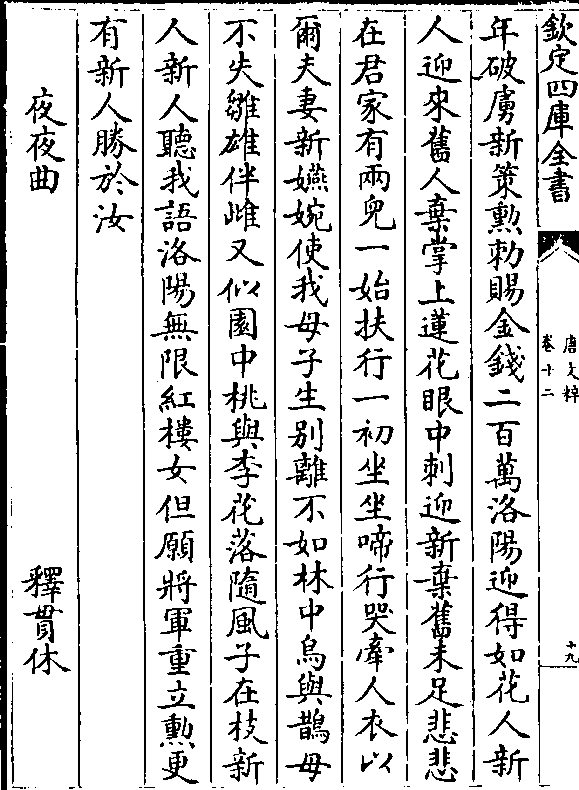 欽定四庫全書
唐文粹
卷十二
十九
年破虜新策勲勅賜金錢二百萬洛陽迎得如花人新
人迎來舊人棄掌上蓮花眼中刺迎新棄舊未足悲悲
在君家有兩兒一始扶行一初坐坐啼行哭牽人衣以
爾夫妻新嬿婉使我母子生别離不如林中烏與鵲母
不失雛雄伴雌又似園中桃與李花落隨風子在枝新
人新人聽我語洛陽無限紅樓女但願將軍重立勲更
有新人勝於汝
夜夜曲
釋貫休